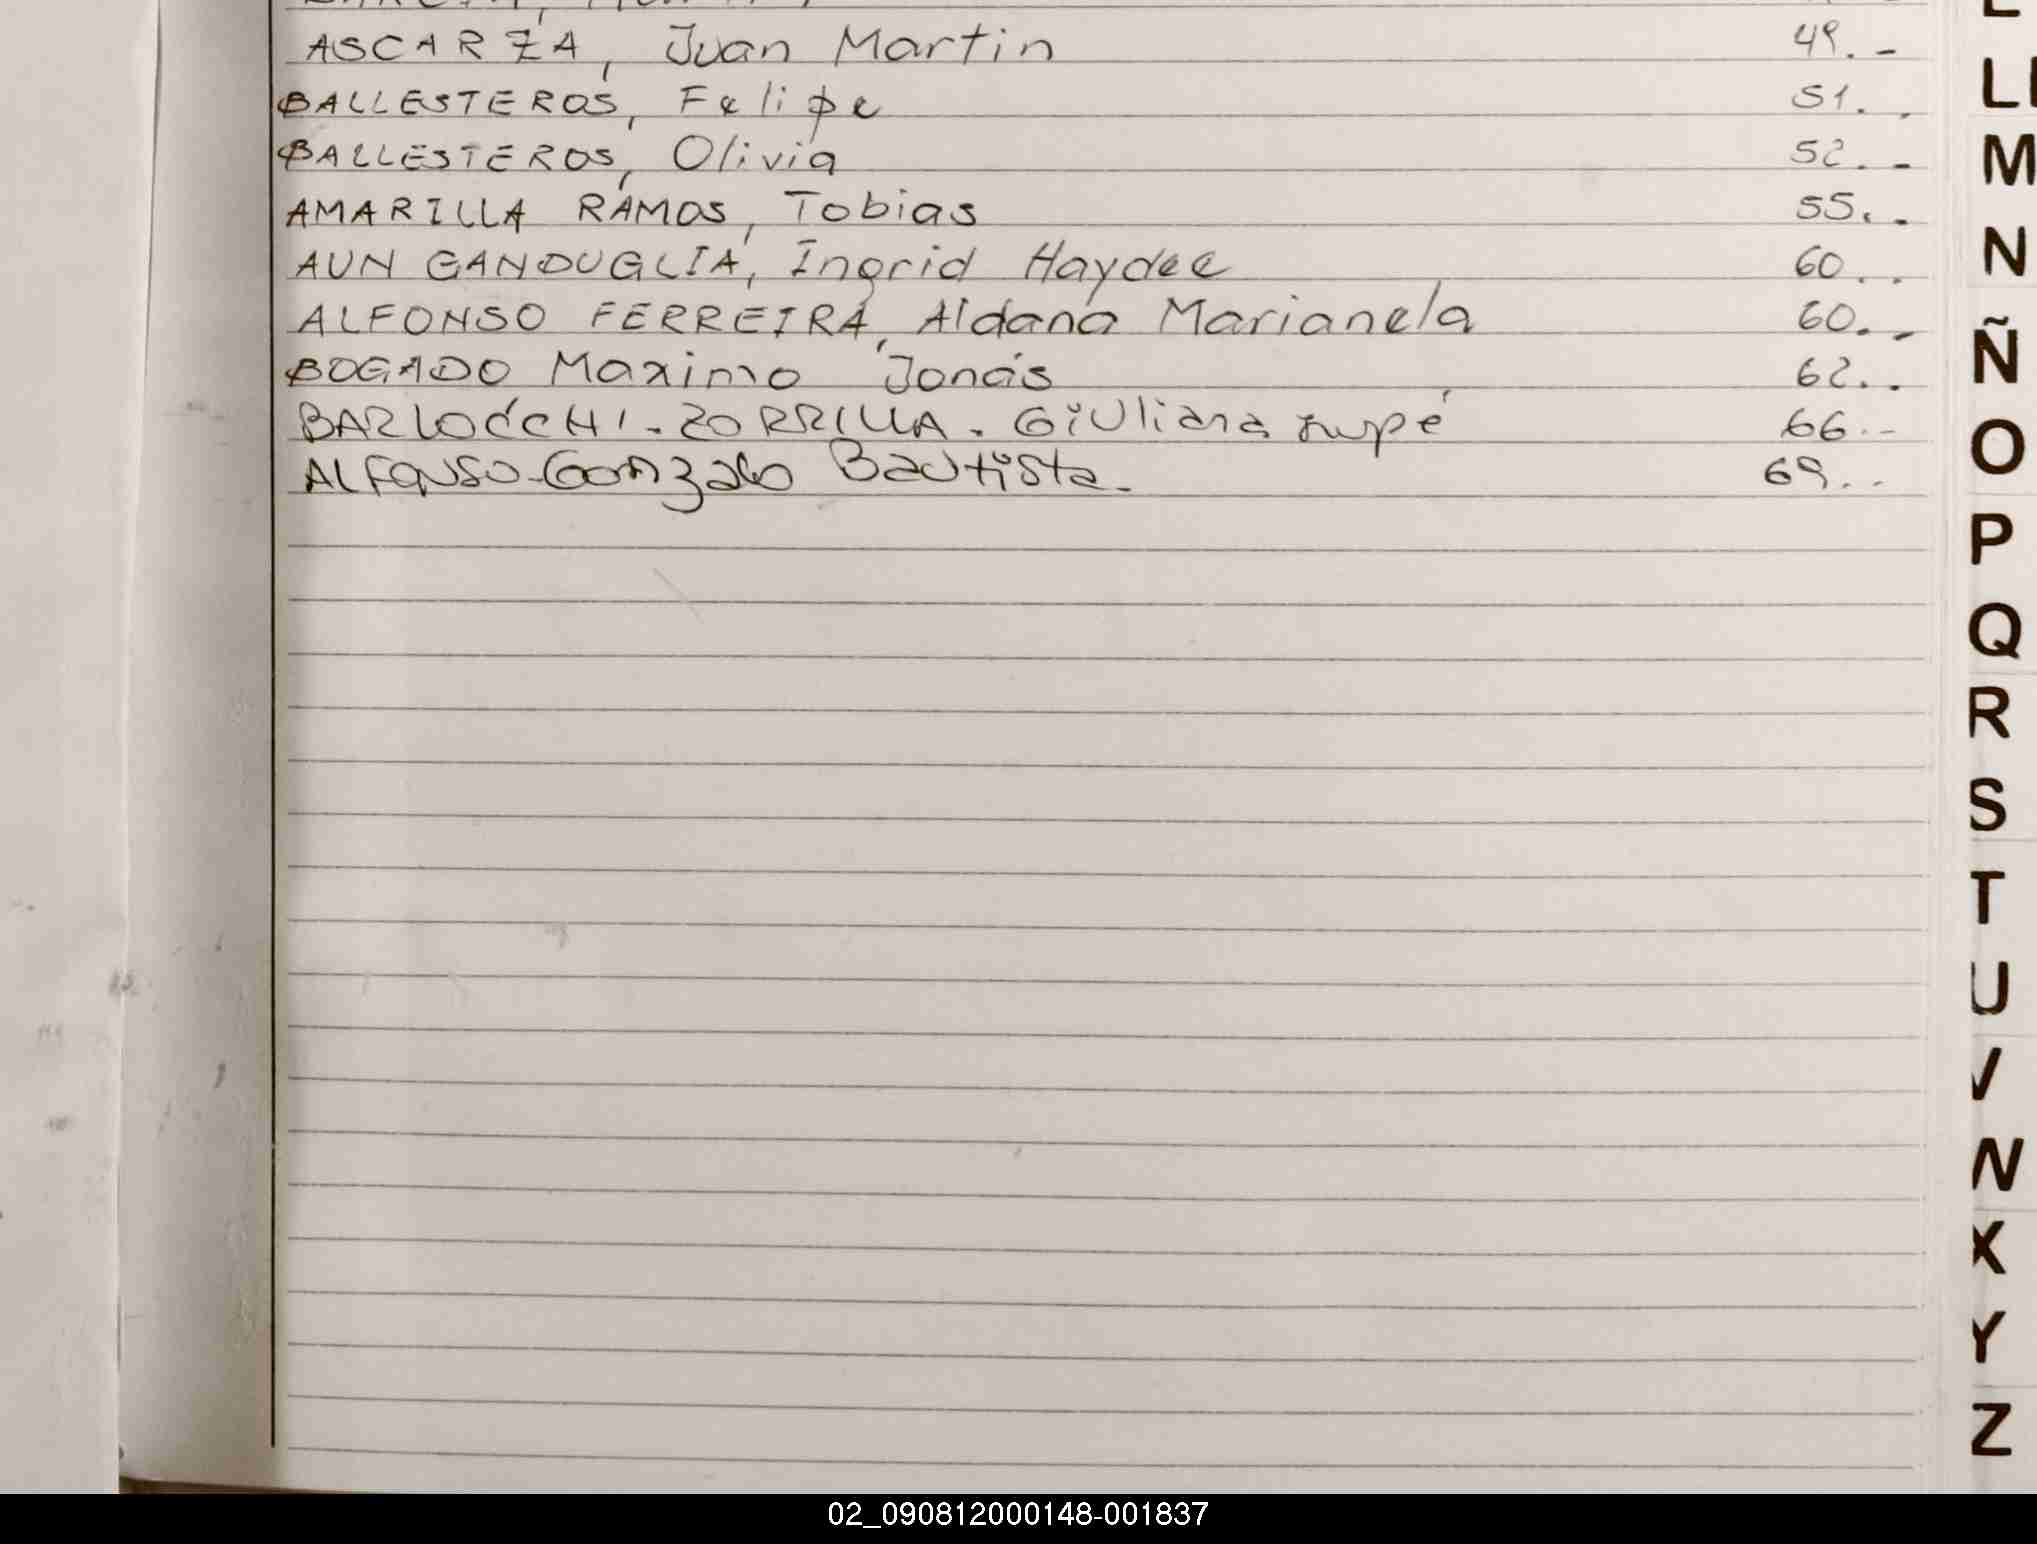 ASCARZA, Juan Martin 49.-
BALLESTEROS, Felipe 51..
BALLESTEROS, Olivia 52.-
AMARILLA RAMOS, Tobias 55..
AUN GANDUGLIA, Ingrid Haydee 60..
ALFONSO FERREIRA, Aldana Marianela 60.-
BOGADO Maximo Jonás 62..
BARLOCCHI-ZORRILLA. Giuliana 66.-
ALFONSO-Gonzalo Bautista- 69..
L
LL
M
N
Ñ
O
P
Q
R
S
T
U
V
W
X
Y
Z
02_090812000148-001837